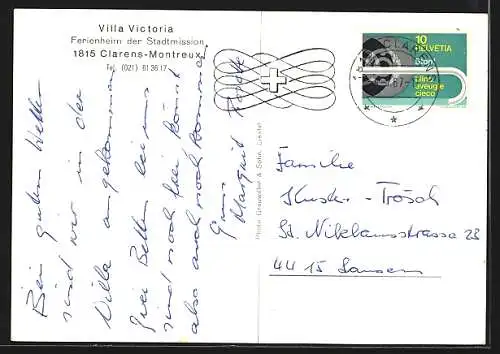 Villa Victoria
Ferienheim der Stadtmission
1815 Clarens-Montreux
Tel. (021) 61 36 17
Bei gutem Wetter
sind wir in der
Villa angekommen
frei Betten bei uns
sind noch frei könnt
also auch noch kommen
Gruss
Margrit
Photo: Grauwiler & Sohn, Liestal
CLARENS
10
HELVETIA
blind
aveugle
cieco
Familie
Kuster-Trösch
St. Niklausstrasse 23
4415 Lausen